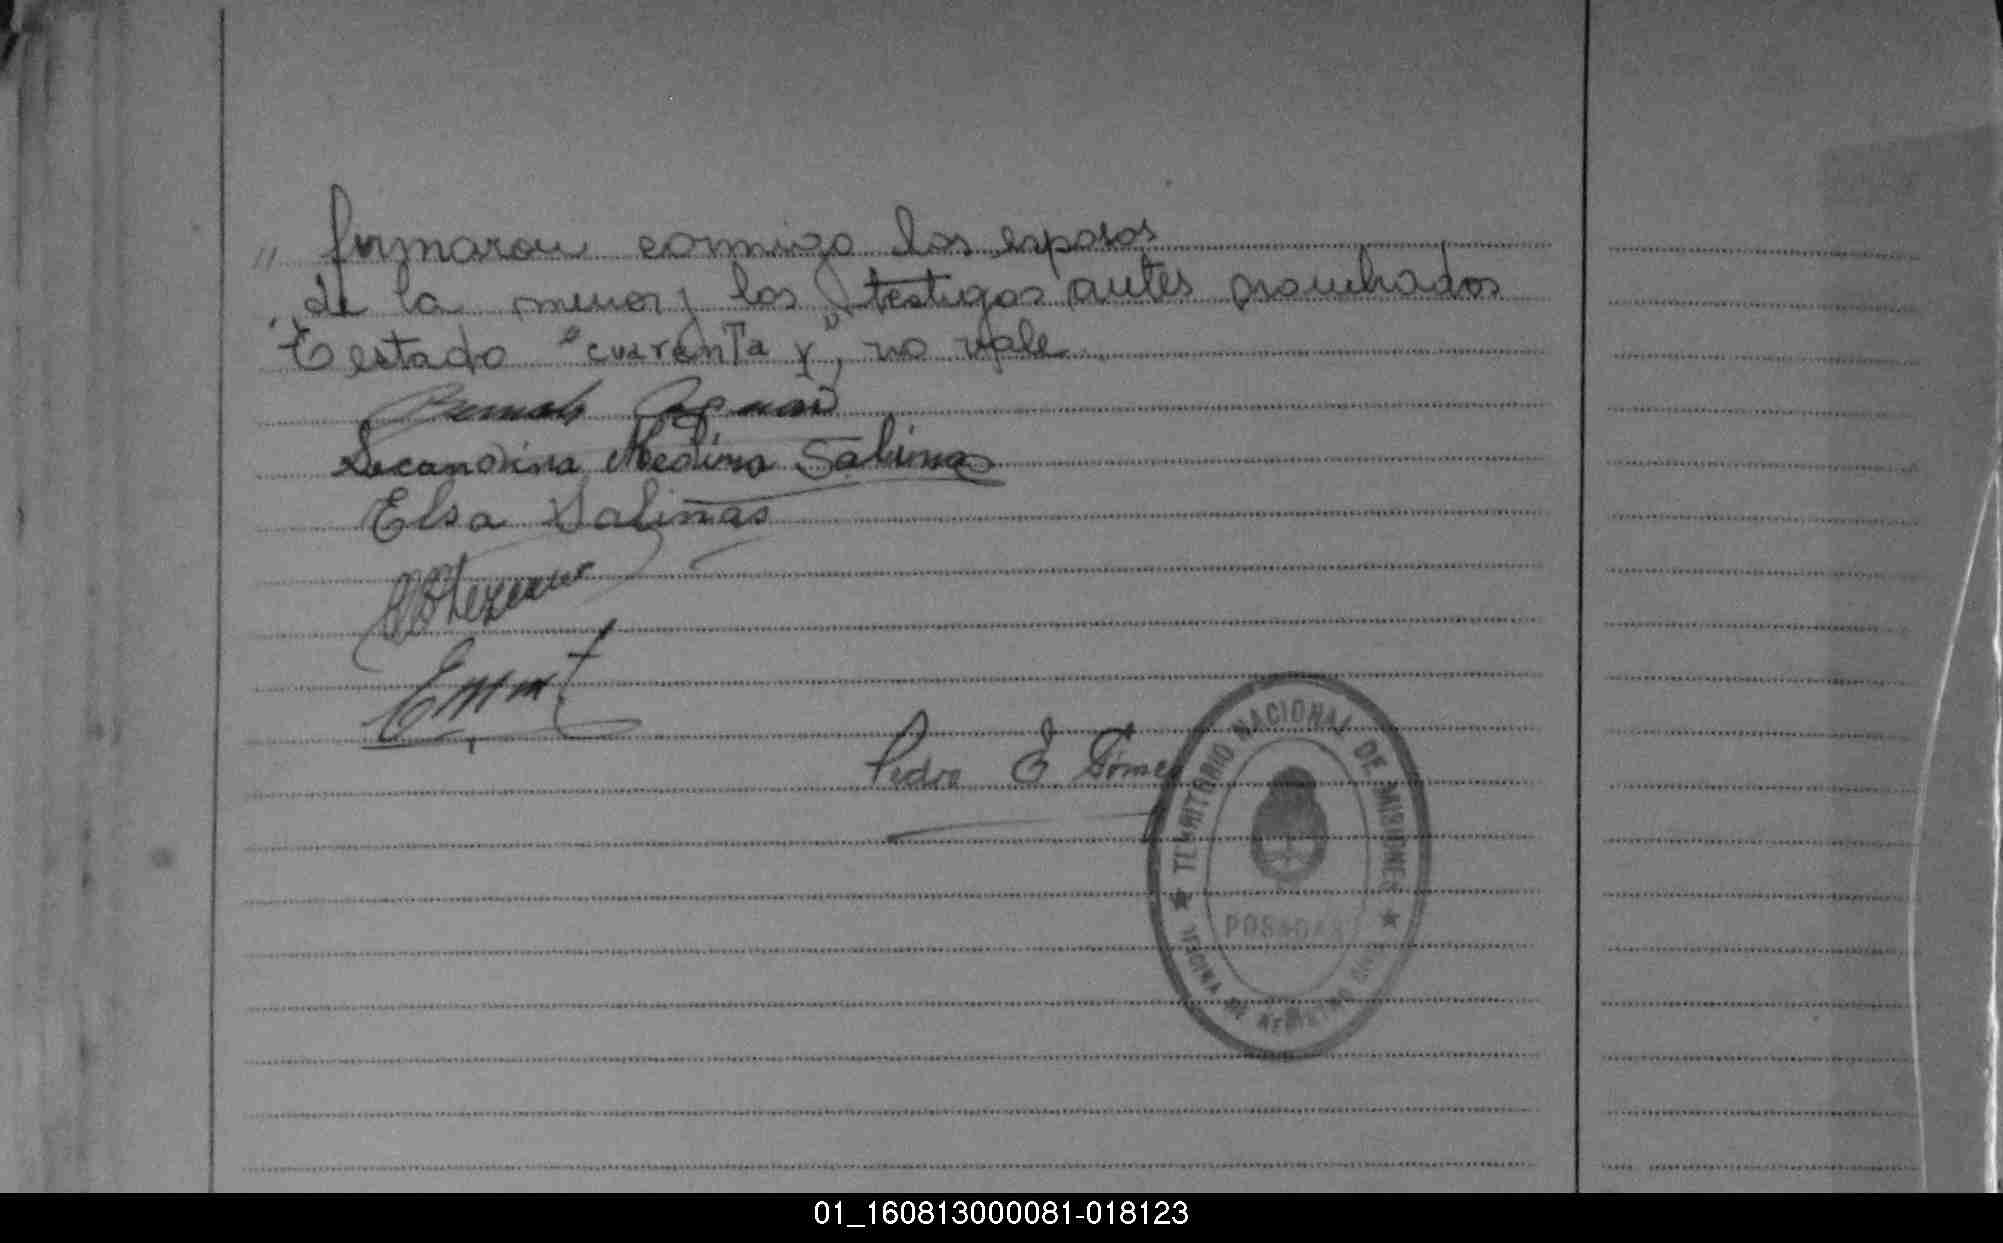 " firmaron conmigo los esposos
de la menor y los testigos antes nombrados
Testado "cuarenta y", no vale
Secandina Medina Salinas
Elsa Salinas
Pedro E. Gómez
TERRITORIO NACIONAL DE MISIONES
POSADAS
OFICINA DE REGISTRO CIVIL
01_160813000081-018123